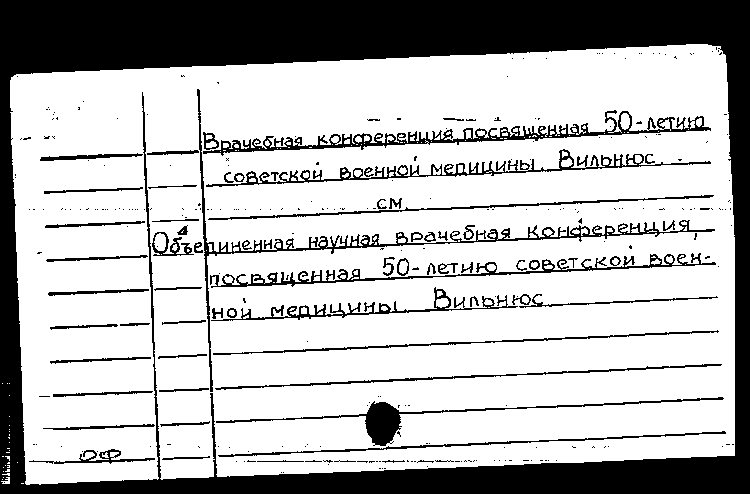 Врачебная конференция, посвященная 50-летию
советской военной медицины. Вильнюс.
см.
Объединенная научная врачебная конференция,
посвященная 50-летию советской воен-
ной медицины. Вильнюс
ОФ